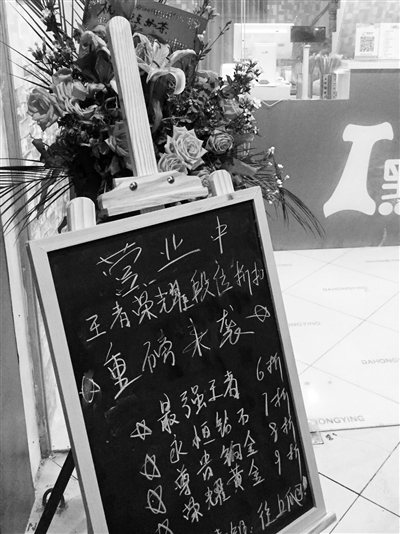 营业中
王者荣耀段位折扣
重磅来袭
最强王者 6折
永恒钻石 7折
尊贵铂金 8折
荣耀黄金 9折
DAHONGYING